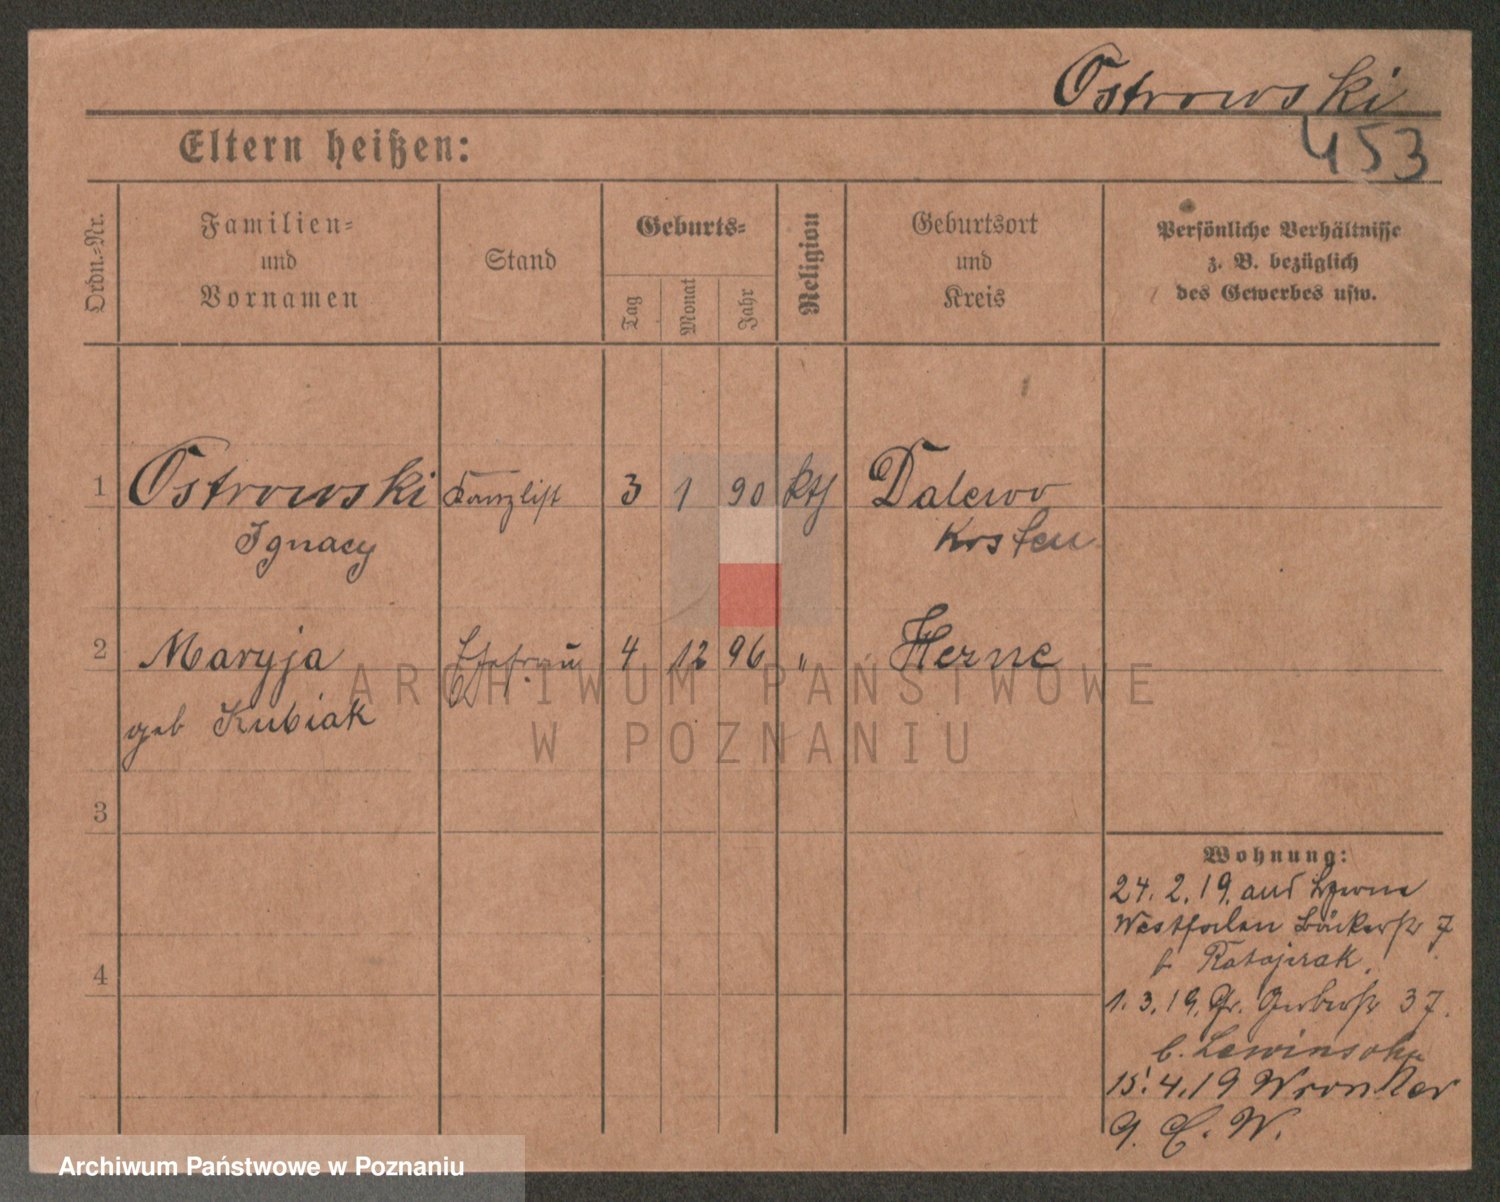 Ostrowski
453
Eltern heißen:
Ordn.-Nr.
Familien-
und
Vornamen
Stand
Geburts-
Tag
Monat
Jahr
Religion
Geburtsort
und
Kreis
Persönliche Verhältnisse
z. B. bezüglich
des Gewerbes usw.
1 Ostrowski Kanzlist 3 1 90 kth Dalewo
Ignacy Kosten
2 Maryja Ehefrau 4 12 96 " Herne
geb Kubiak
3
4
Wohnung:
24. 2. 19. aus Herne
Westfalen Bäckerstr 7
b Ratajczak.
1. 3. 19. Gr. Gerberstr 37.
b. Lewinsohn
15. 4. 19 Wronker
9. W.
ARCHIWUM PAŃSTWOWE
W POZNANIU
Archiwum Państwowe w Poznaniu